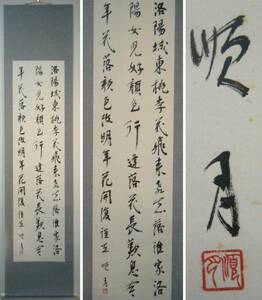 洛陽城東桃李花飛来飛去落誰家洛
陽女児好顔色行逢落花長歎息今
年花落顔色改明年花開復誰在 順月
洛陽城東桃李花飛来飛去落誰家洛
陽女児好顔色行逢落花長歎息今
年花落顔色改明年花開復誰在 順月
順月